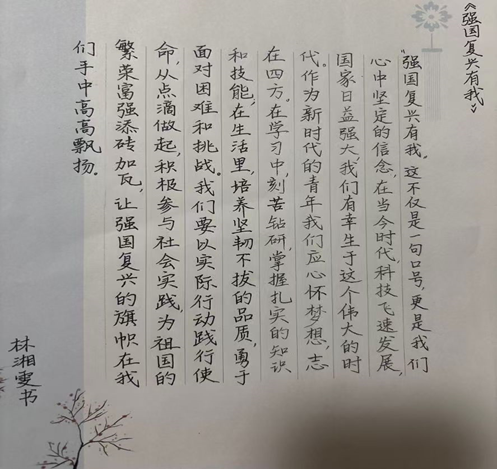 《强国复兴有我》
“强国复兴有我”。这不仅是一句口号，更是我们
心中坚定的信念，在当今时代，科技飞速发展，
国家日益强大，我们有幸生于这个伟大的时
代。作为新时代的青年我们应心怀梦想，志
在四方。在学习中，刻苦钻研，掌握扎实的知识
和技能，在生活里，培养坚韧不拔的品质，勇于
面对困难和挑战。我们要以实际行动践行使
命，从点滴做起，积极参与社会实践，为祖国的
繁荣富强添砖加瓦，让强国复兴的旗帜在我
们手中高高飘扬。
林湘雯书